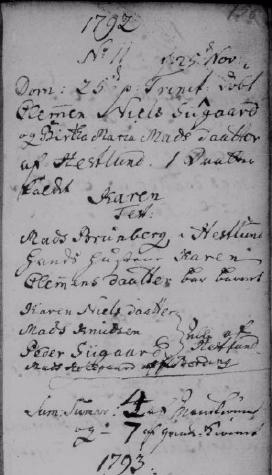 1792
No 11 d 25 Nov:
Dom: 25 p: Trinit: döbt
Clemen Niels Siigaard
og Birtha Maria Mads Daatter
af Hestlund. 1 Daatter
kaldt
Karen
Test:
Mads Brünberg i Hestlund
Hands Hustrue Karen
Clemens Daatter bar barnet
Karen Niels Daatter
Mads Knudsen
Peder Siigaard alle af Hestlund
Mads af Bording
Sum: Sumar: 4 af Mandkiønnet
og - 7 af Qvinde-Kiønnet
1793